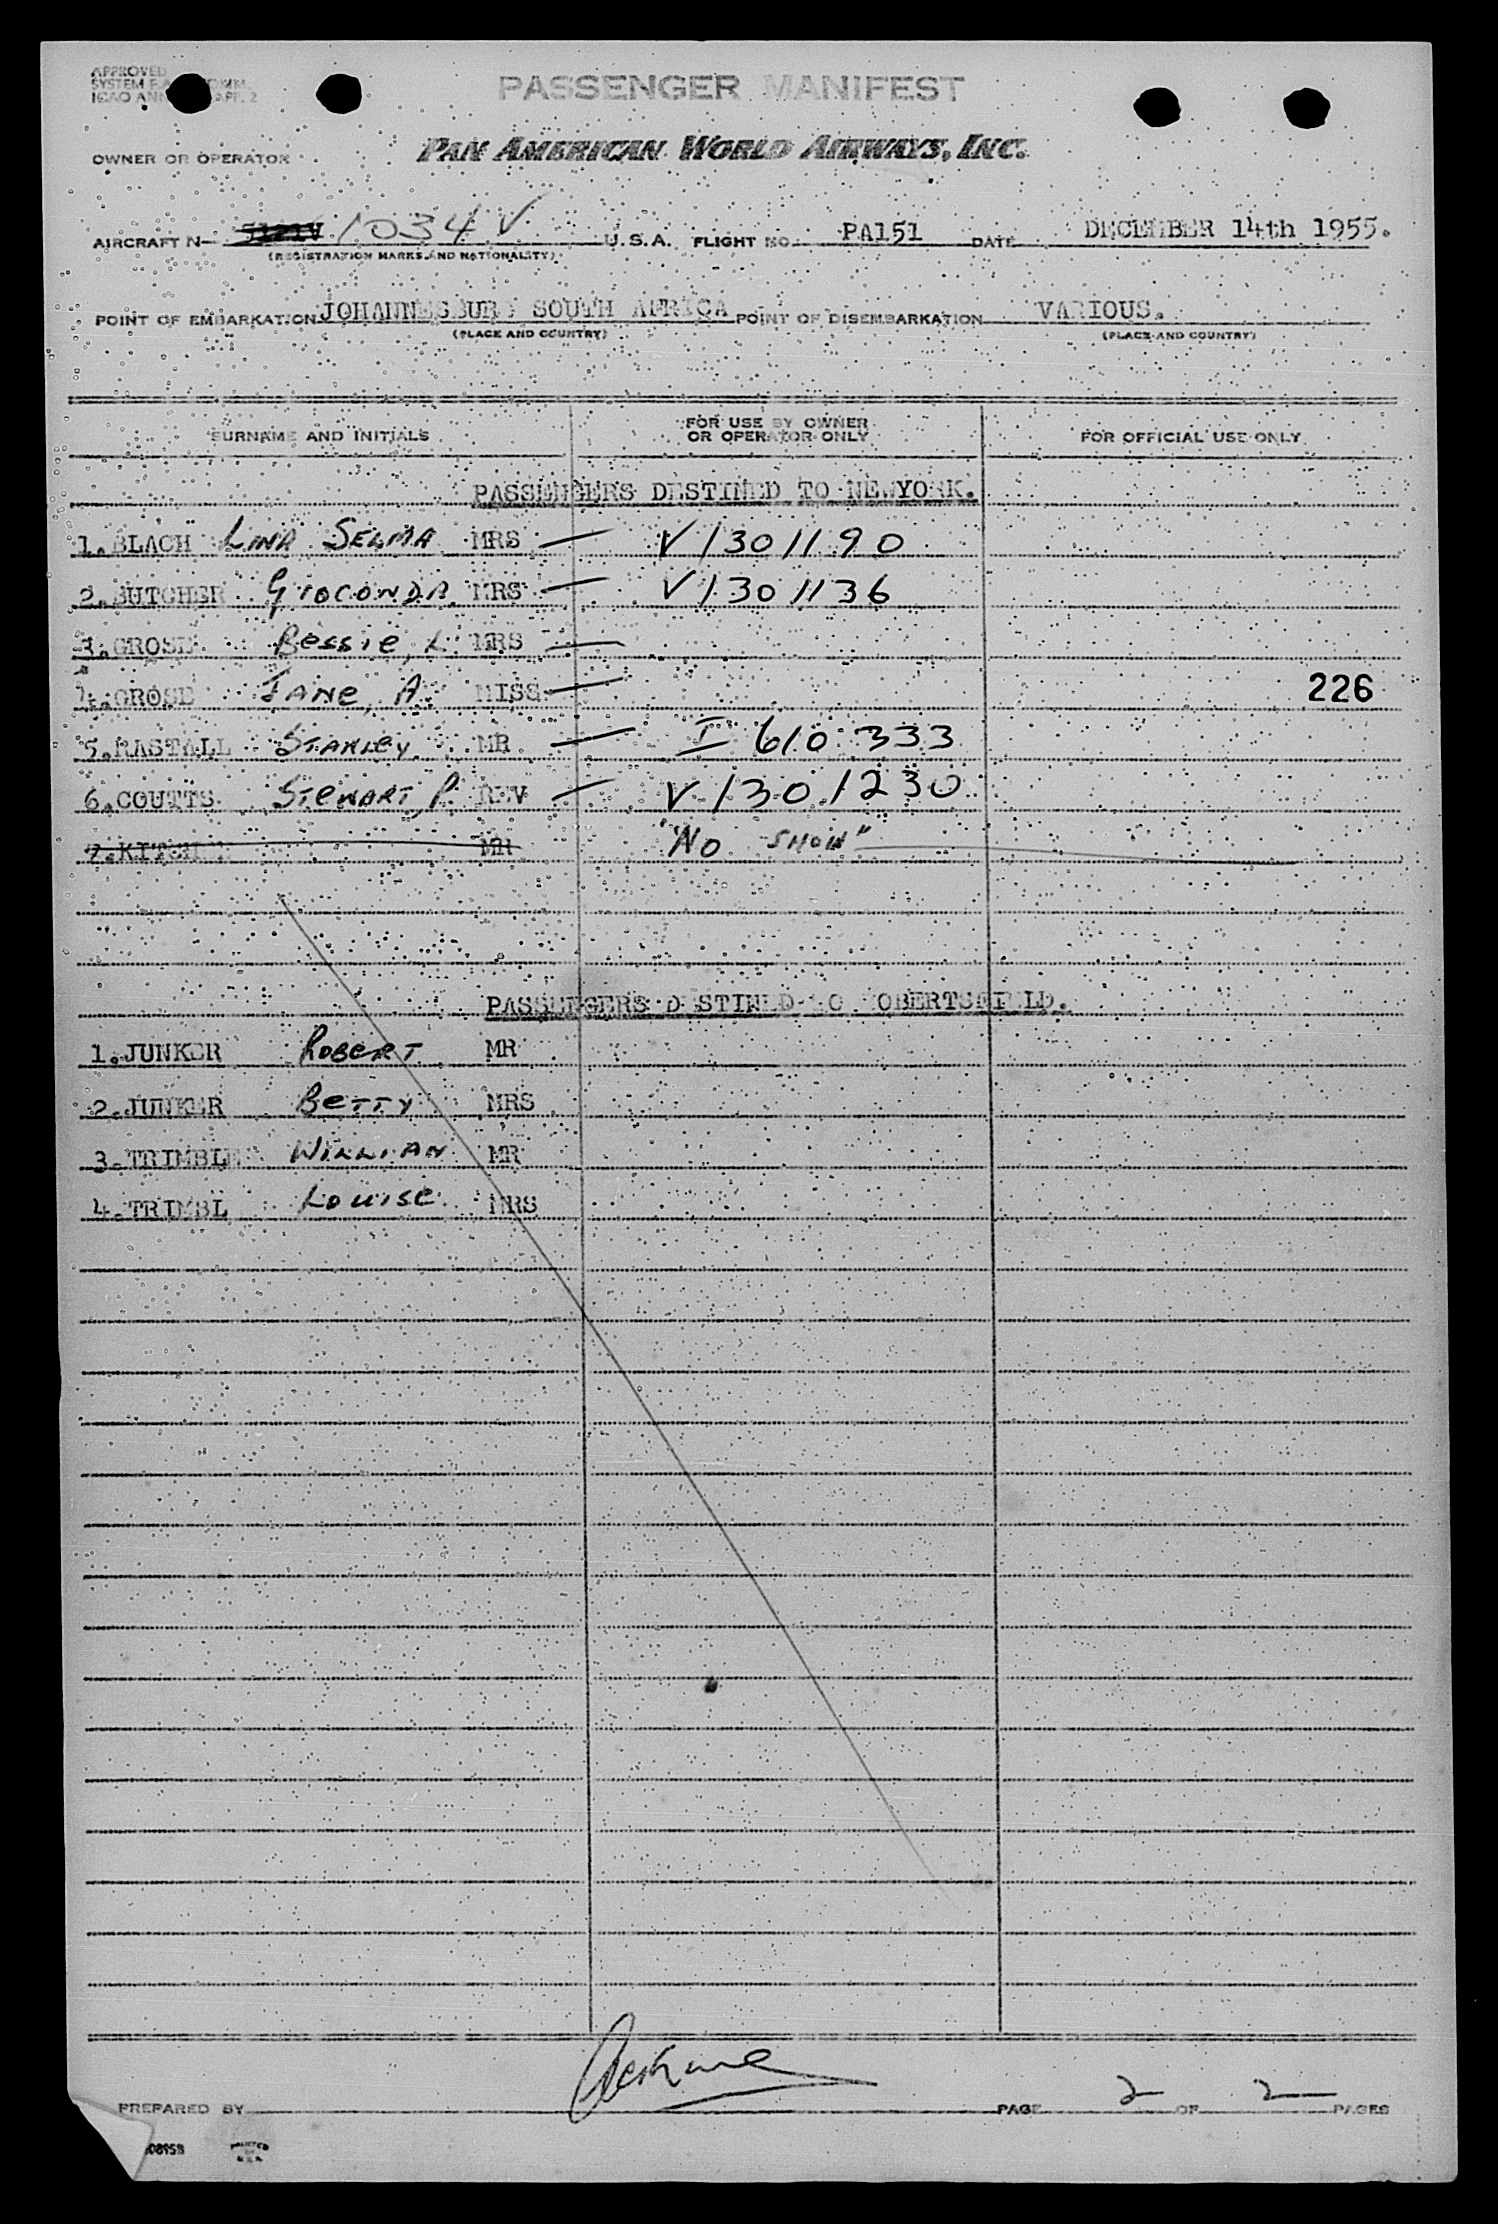 APPROVED
SYSTEM
ICAO
PASSENGER MANIFEST
OWNER OR OPERATOR PAN AMERICAN WORLD AIRWAYS, INC.
AIRCRAFT N- 1034V U.S.A. FLIGHT NO. PA151 DATE DECEMBER 14th 1955.
(REGISTRATION MARKS AND NATIONALITY)
POINT OF EMBARKATION JOHANNESBURG SOUTH AFRICA POINT OF DISEMBARKATION VARIOUS.
(PLACE AND COUNTRY) (PLACE AND COUNTRY)
SURNAME AND INITIALS FOR USE BY OWNER OR OPERATOR ONLY FOR OFFICIAL USE ONLY
PASSENGERS DESTINED TO NEWYORK.
1. BLACH LINA SELMA MRS — V1301190
2. BUTCHER GIOCONDA MRS — V1301136
3. GROSE Bessie, L MRS —
4. GROSE JANE, A. MISS — 226
5. RASTALL STANLEY MR — I 610 333
6. COUTTS STEWART P. REV — V1301230
7. MR "NO SHOW"
PASSENGERS DESTINED TO ROBERTSFIELD.
1. JUNKER ROBERT MR
2. JUNKER BETTY MRS
3. TRIMBLE WILLIAM MR
4. TRIMBL LOUISE MRS
PREPARED BY PAGE 2 OF 2 PAGES
PRINTED IN U.S.A.